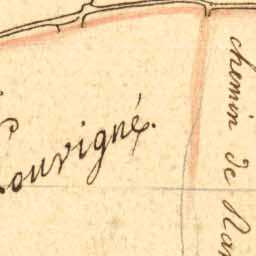 Louvigné.
chemin de